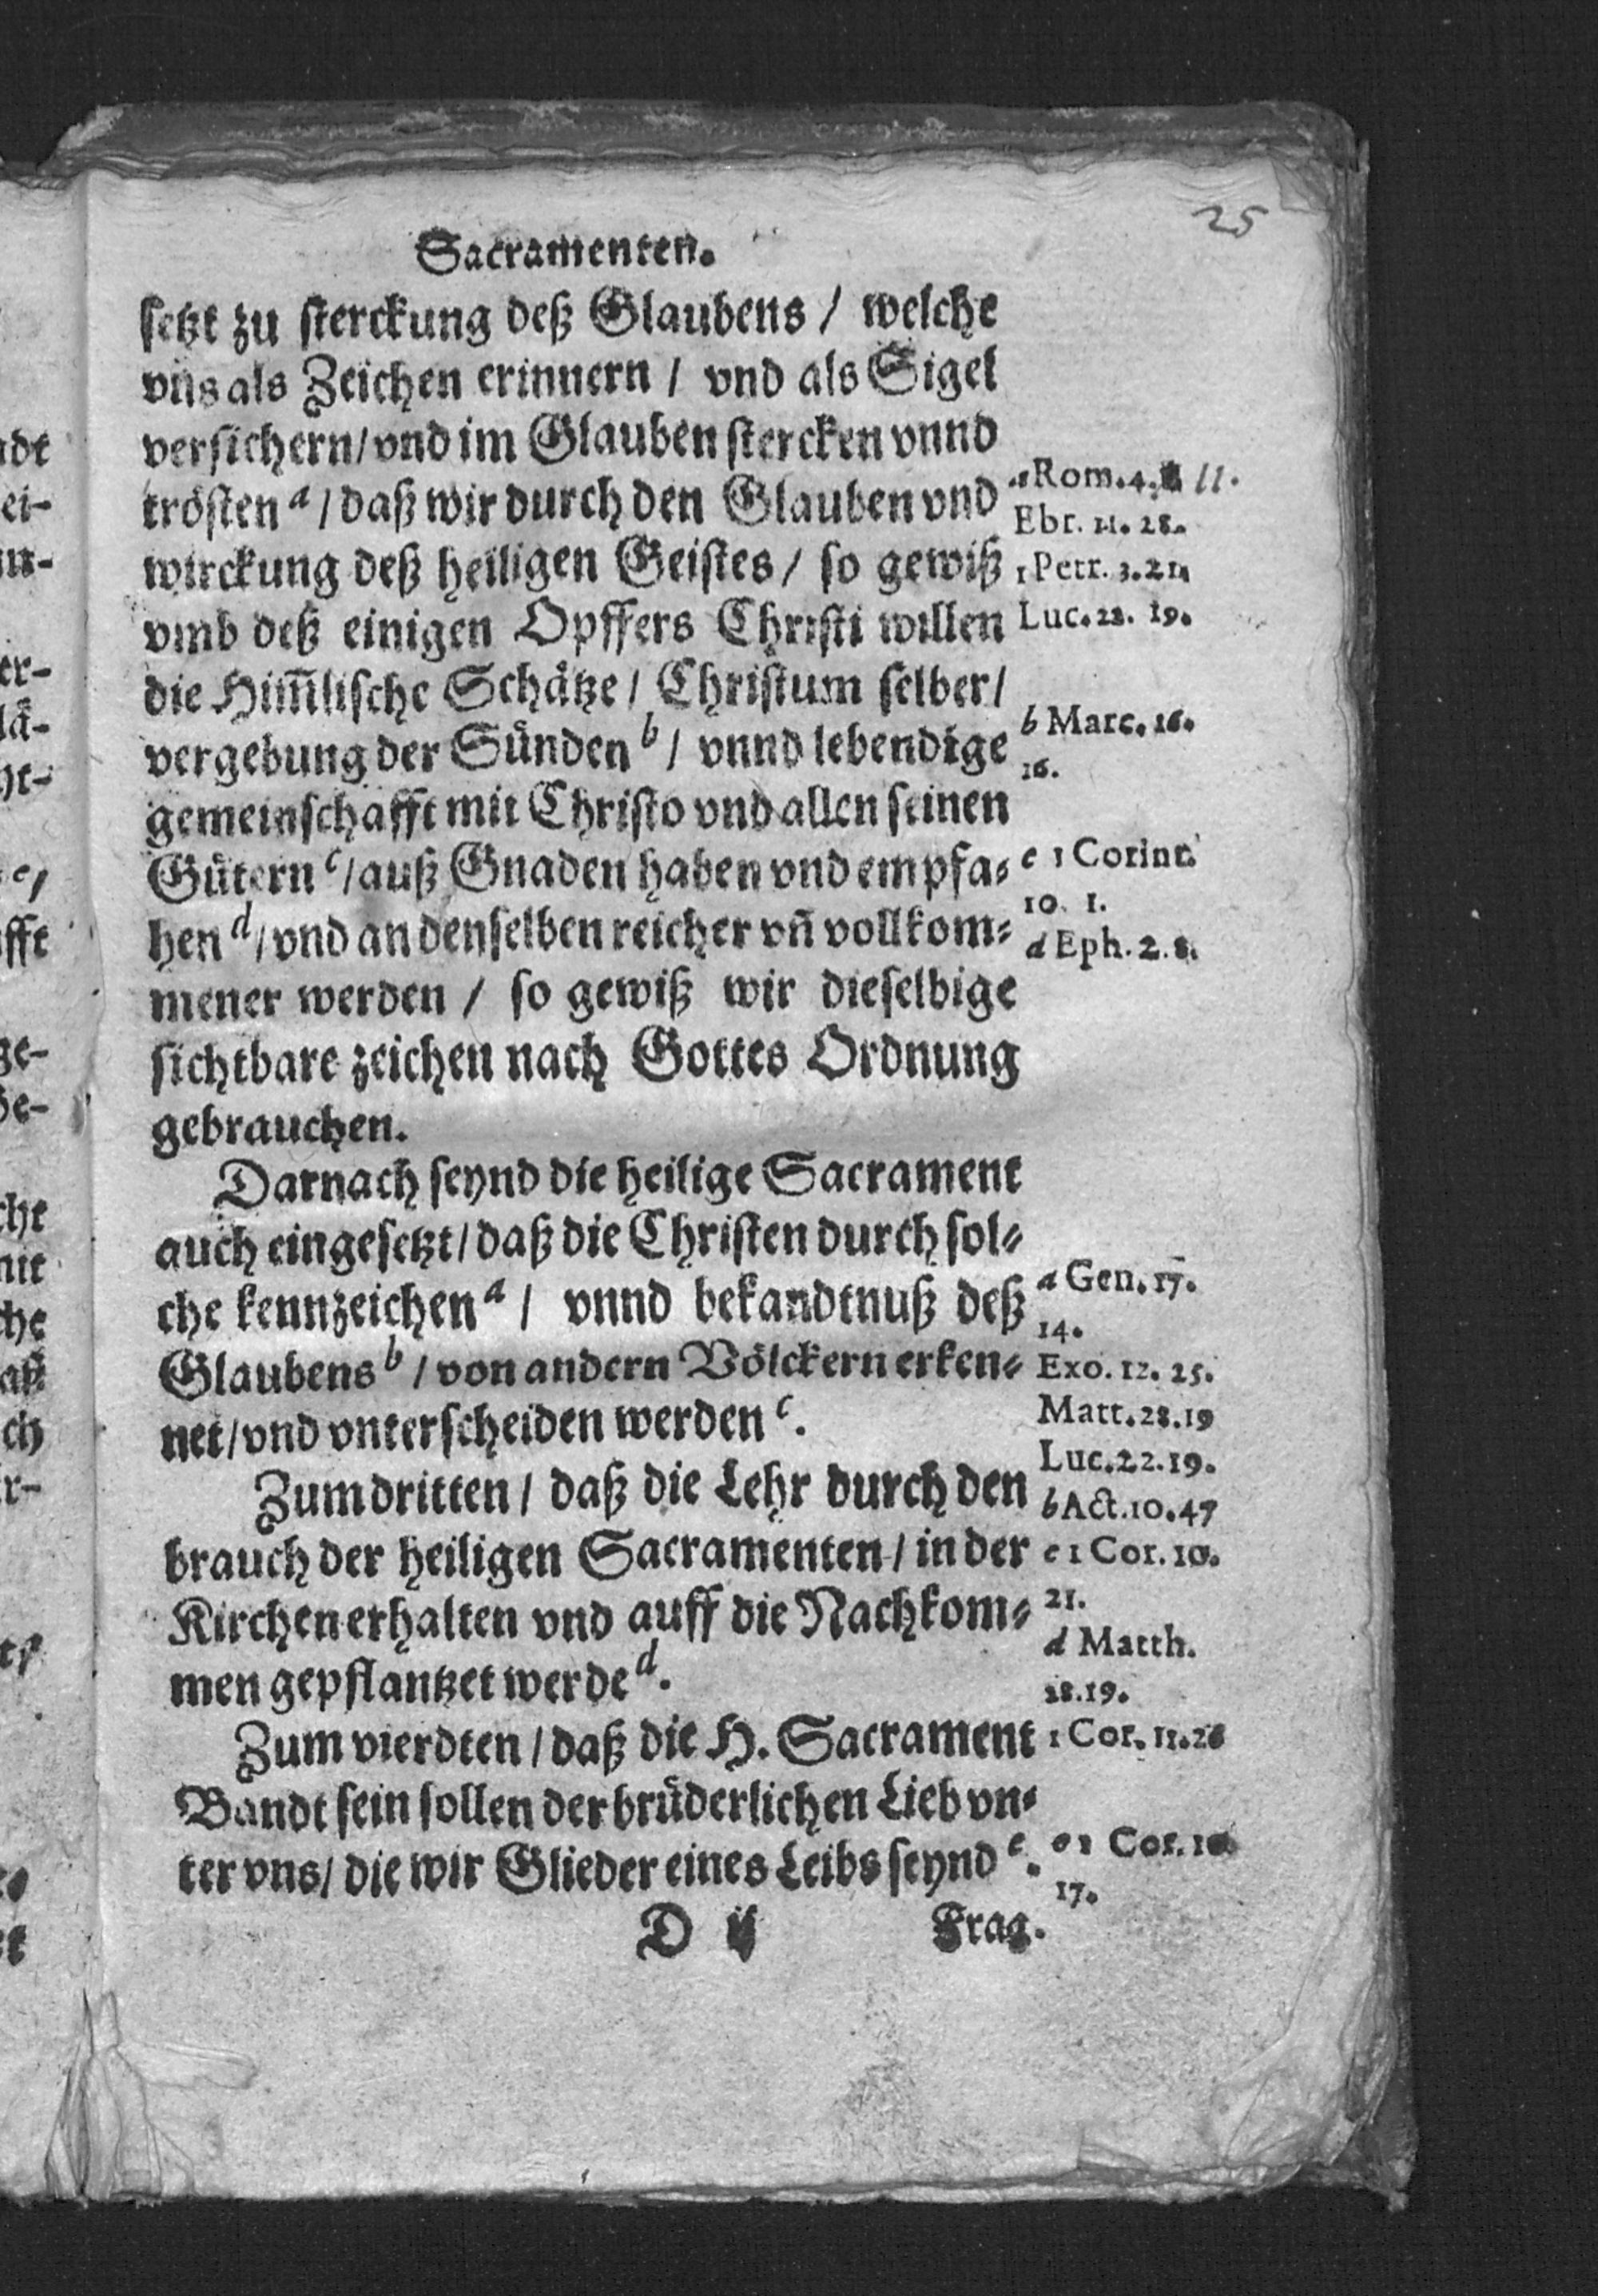 25
Sacramenten.
setzt zu sterckung deß Glaubens / welche
vns als Zeichen erinnern / vnd als Sigel
versichern/vnd im Glauben stercken vnnd
trösten a / daß wir durch den Glauben vnd
wirckung deß heiligen Geistes / so gewiß
vmb deß einigen Opffers Christi willen
die Him̃lische Schätze / Christum selber/
vergebung der Sünden b / vnnd lebendige
gemeinschafft mit Christo vnd allen seinen
Gütern c /auß Gnaden haben vnd empfa-
hen d /vnd an denselben reicher vñ vollkom-
mener werden / so gewiß wir dieselbige
sichtbare zeichen nach Gottes Ordnung
gebrauchen.
Darnach seynd die heilige Sacrament
auch eingesetzt / daß die Christen durch sol-
che kennzeichen a / vnnd bekandtnuß deß
Glaubens b / von andern Völckern erken-
net/vnd vnterscheiden werden c .
Zum dritten / daß die Lehr durch den
brauch der heiligen Sacramenten / in der
Kirchen erhalten vnd auff die Nachkom-
men gepflantzet werde d .
Zum vierdten / daß die H. Sacrament
Bandt sein sollen der brüderlichen Lieb vn-
ter vns/ die wir Glieder eines Leibs seynd e .
D ij Frag.
a Rom. 4. 11.
Ebr. 11. 28.
1 Petr. 3. 21
Luc. 22. 19.
b Marc. 16.
16.
c 1 Corint.
10. 1.
d Eph. 2. 8.
a Gen. 17.
14.
Exo. 12. 25.
Matt. 28. 19
Luc. 22. 19.
b Act. 10. 47
c 1 Cor. 10.
21.
d Matth.
28. 19.
1 Cor. 11. 26
e 1 Cor. 10
17.